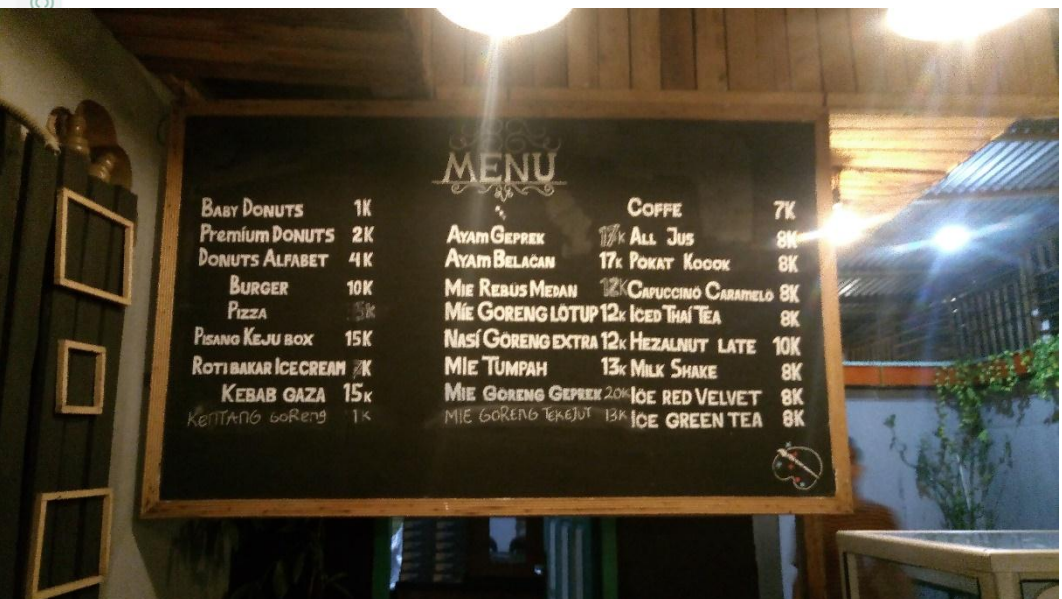 MENU
BABY DONUTS 1K
Premium DONUTS 2K
DONUTS ALFABET 4K
BURGER 10K
PIZZA
PISANG KEJU BOX 15K
ROTI BAKAR ICE CREAM
KEBAB GAZA 15K
KENTANG GORENG 1K
AYAM GEPREK
AYAM BELACAN 17K
MIE REBUS MEDAN 12K
MIE GORENG LOTUP 12K
NASI GORENG EXTRA 12K
MIE TUMPAH 13K
MIE GORENG GEPREK 20K
MIE GORENG TEKEJUT 13K
COFFE 7K
ALL JUS 8K
POKAT KOCOK 8K
CAPUCCINO CARAMELO 8K
ICED THAI TEA 8K
HEZALNUT LATE 10K
MILK SHAKE 8K
ICE RED VELVET 8K
ICE GREEN TEA 8K